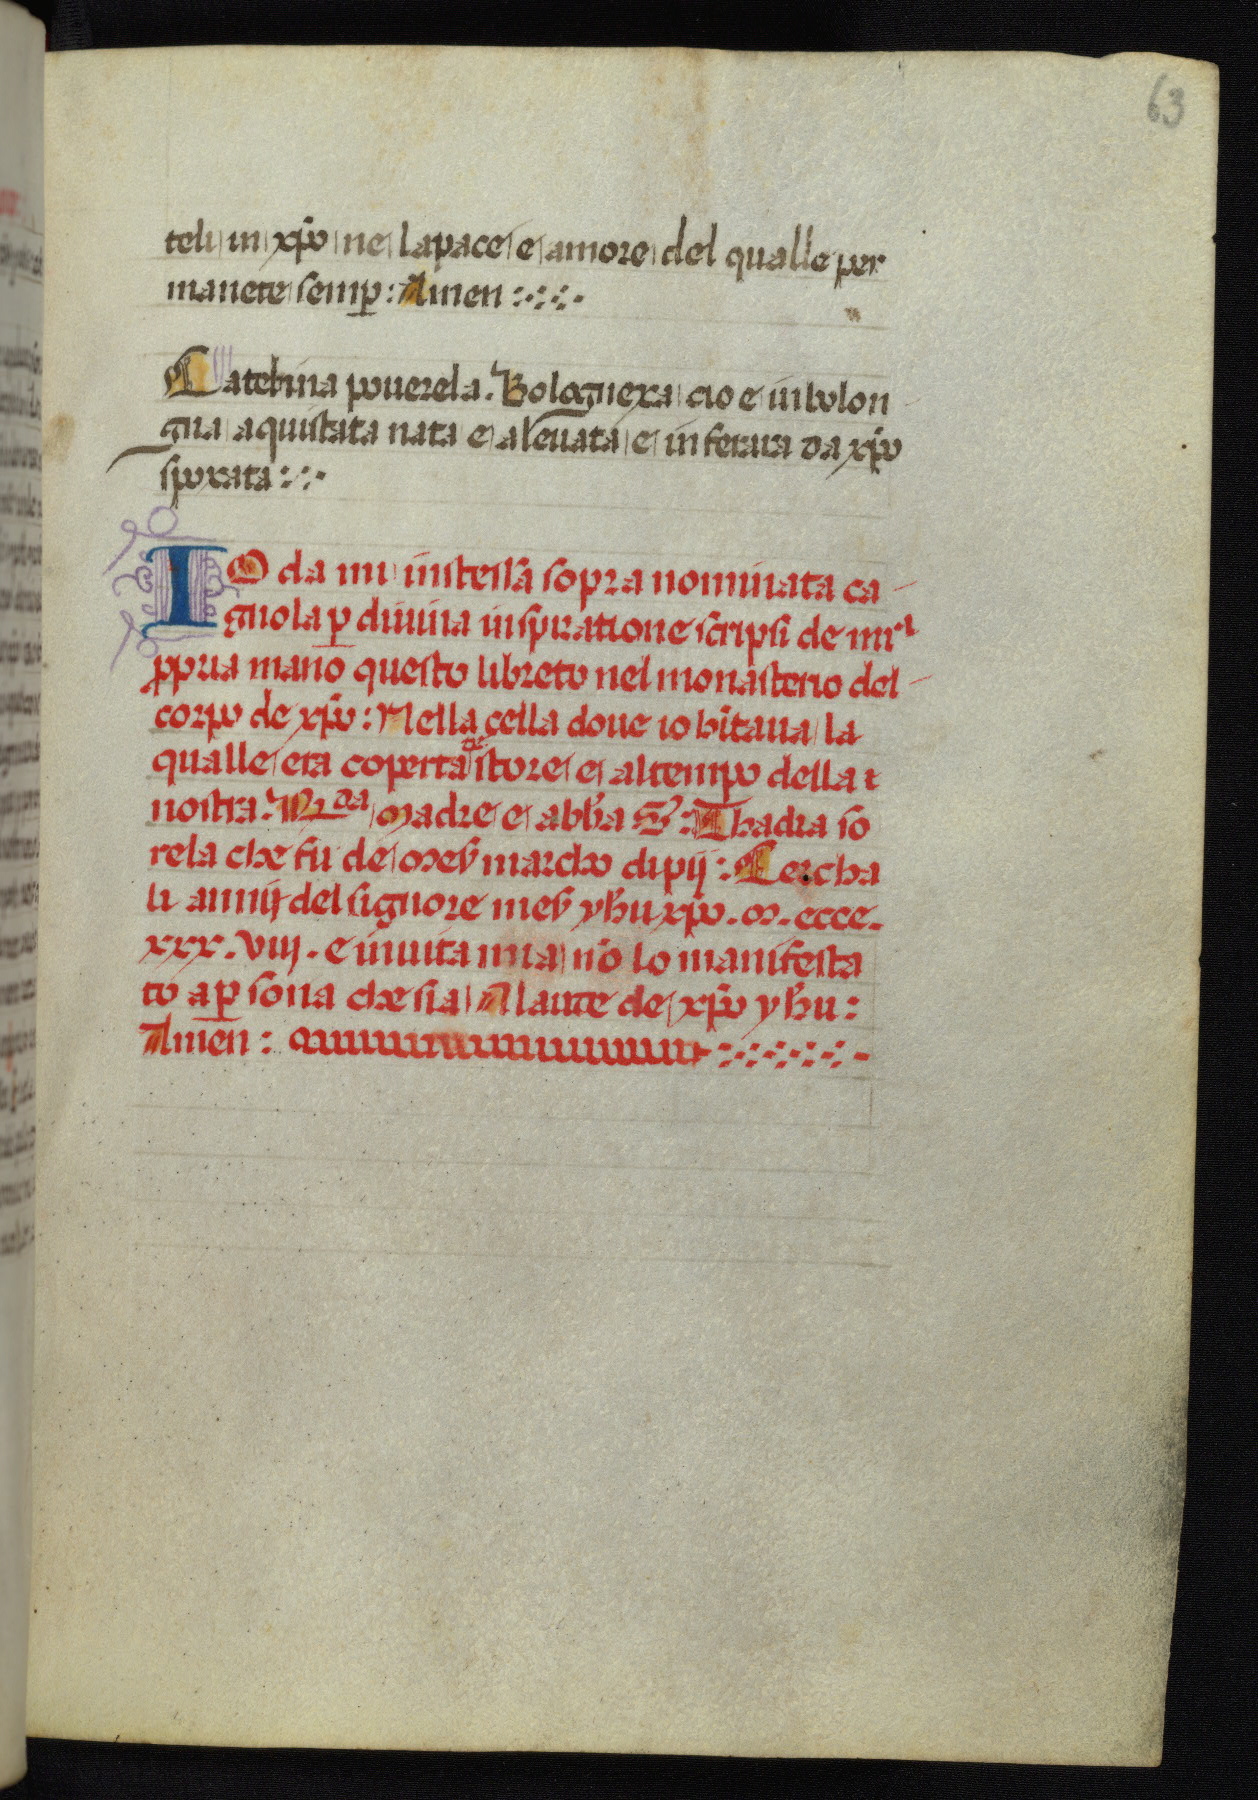 63
teli in xp̄o ne lapace e amore del qualle per
manete semp̲: Amen :·:·:·
Catelina poverela. Bologuexa cio e in bolon
gna aquistata nata e alevata e in ferara da xp̄o
sporata :·:·
IO da mi instessa sopra nominata ca
gnola p̲ divina inspiratione scripsi de mia
ppria mano questo libreto nel monasterio del
corpo de xp̄o: Nella cella dove io bitava la
qualle era coperta de store e altempo della
nostra. Rda madre e abb̄a S: Thadia so
rela che fu de mes̄ marcho di pij: Cercha
li annij del signore mes̄ yh̄u xp̄o. m. cccc.
xxx. viij. e in vita mia nō lo manifesta
to a p̲sona che sia A laute de xp̄o yh̄u:
Amen: